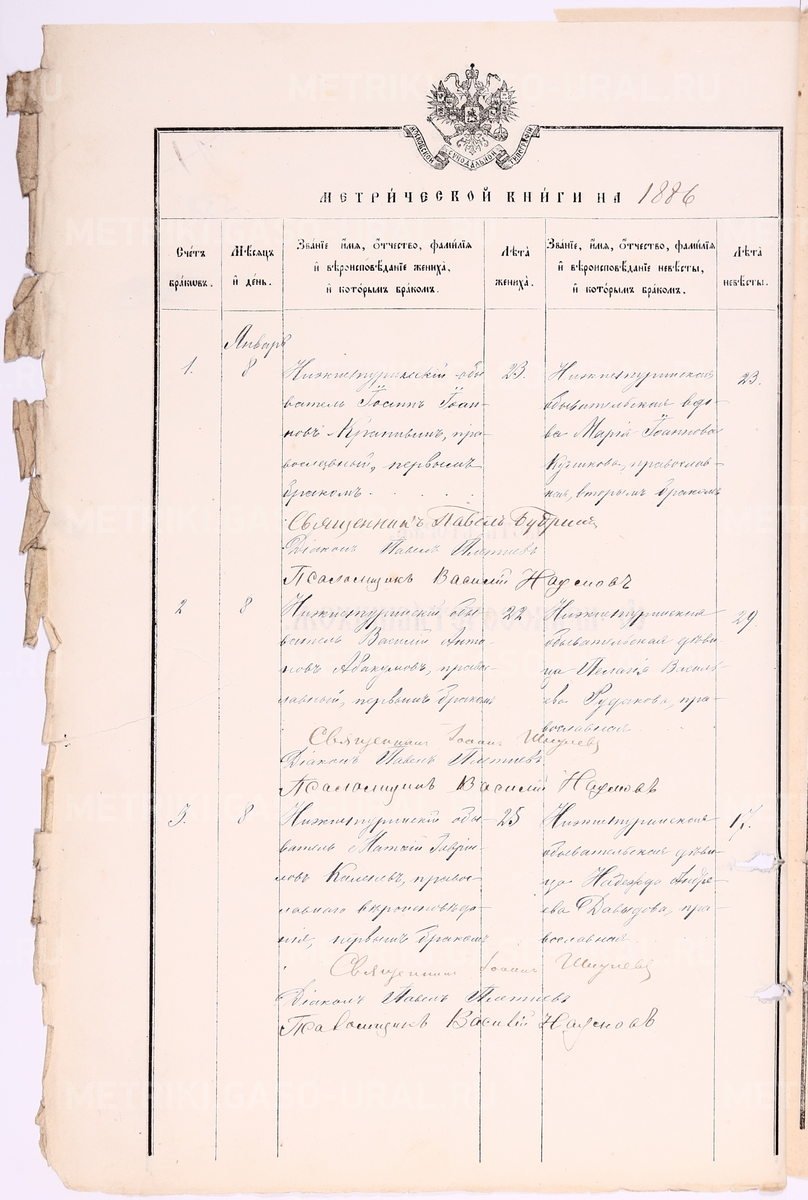 МОСКОВСКОЙ СѴНОДАЛЬНОЙ ТИПОГРАФІИ
МЕТРИ́ЧЕСКОЙ КНИ́ГИ НА 1886
Сче́тъ бра́кѡвъ.
Мѣ́сяцъ и҆ де́нь.
Зва́нїе и҆́мя, ѻ҆́тчество, фами́лїя и҆ вѣроисповѣ́данїе жениха̀, и҆ кото́рымъ бра́комъ.
Лѣ́та жениха̀.
Зва́нїе, и҆́мя, ѻ҆́тчество, фами́лїя и҆ вѣроисповѣ́данїе невѣ́сты, и҆ кото́рымъ бра́комъ.
Лѣ́та невѣ́сты.
Январь
1. 8
Нижнетуринскій обы-
ватель Іосифъ Іоан-
новъ Крапивинъ, пра-
вославный, первымъ
бракомъ . . . . .
23.
Нижнетуринская
обывательская вдо-
ва Марія Іоаннова
православ-
ная, вторымъ бракомъ
23.
Священникъ Павелъ
Діаконъ Павелъ
Псаломщикъ Василій Наумовъ
2 8
Нижнетуринскій обы-
ватель Василій Анто-
новъ Абакумовъ, право-
славный, первымъ бракомъ
22
Нижнетуринская
обывательская дѣви-
ца Пелагія Василь-
ева Рудакова, пра-
вославная
29.
Священникъ Іоаннъ
Діаконъ Павелъ
Псаломщикъ Василій Наумовъ
3. 8
Нижнетуринскій обы-
ватель Матѳій Гаврі-
ловъ православ-
славнаго вѣроисповѣда-
нія, первымъ бракомъ
25
Нижнетуринская
обывательская дѣви-
ца Надежда Андре-
ева Давыдова, пра-
вославная
17.
Священникъ Іоаннъ
Діаконъ Павелъ
Псаломщикъ Василій Наумовъ
METRIKI.GASO-URAL.RU